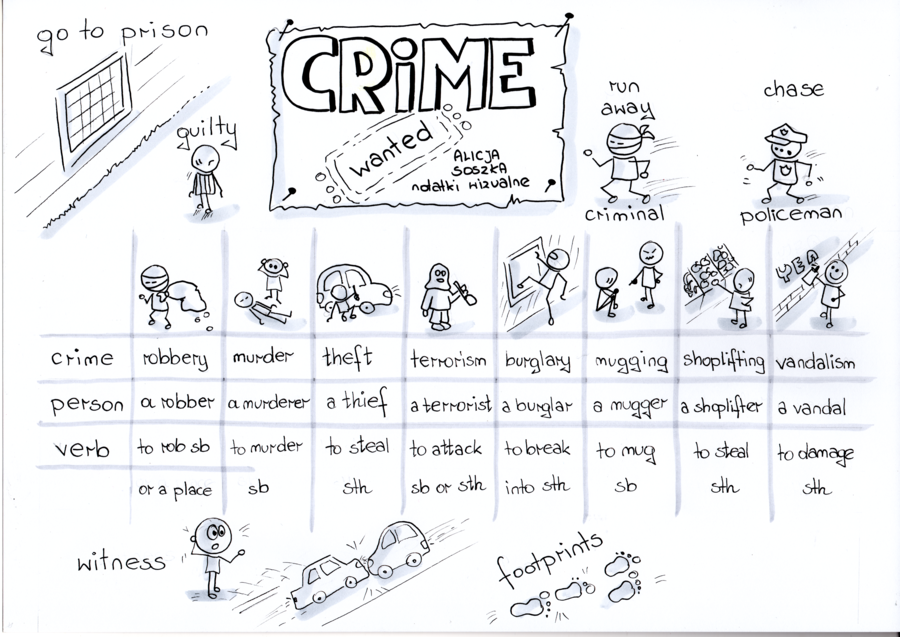 go to prison
CRiME
wanted
ALICJA
SOSZKA
notatki wizualne
guilty
run
away
criminal
chase
policeman
YEA
crime robbery murder theft terrorism burglary mugging shoplifting vandalism
person a robber a murderer a thief a terrorist a burglar a mugger a shoplifter a vandal
verb to rob sb to murder to steal to attack to break to mug to steal to damage
or a place sb sth sb or sth into sth sb sth sth
witness
footprints